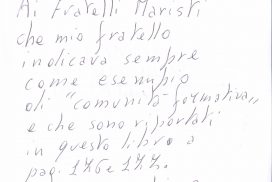 Ai Fratelli Maristi
che mio fratello
indicava sempre
come esempio
di "comunità formativa"
e che sono riportati
in questo libro a
pag. 176 e 177.